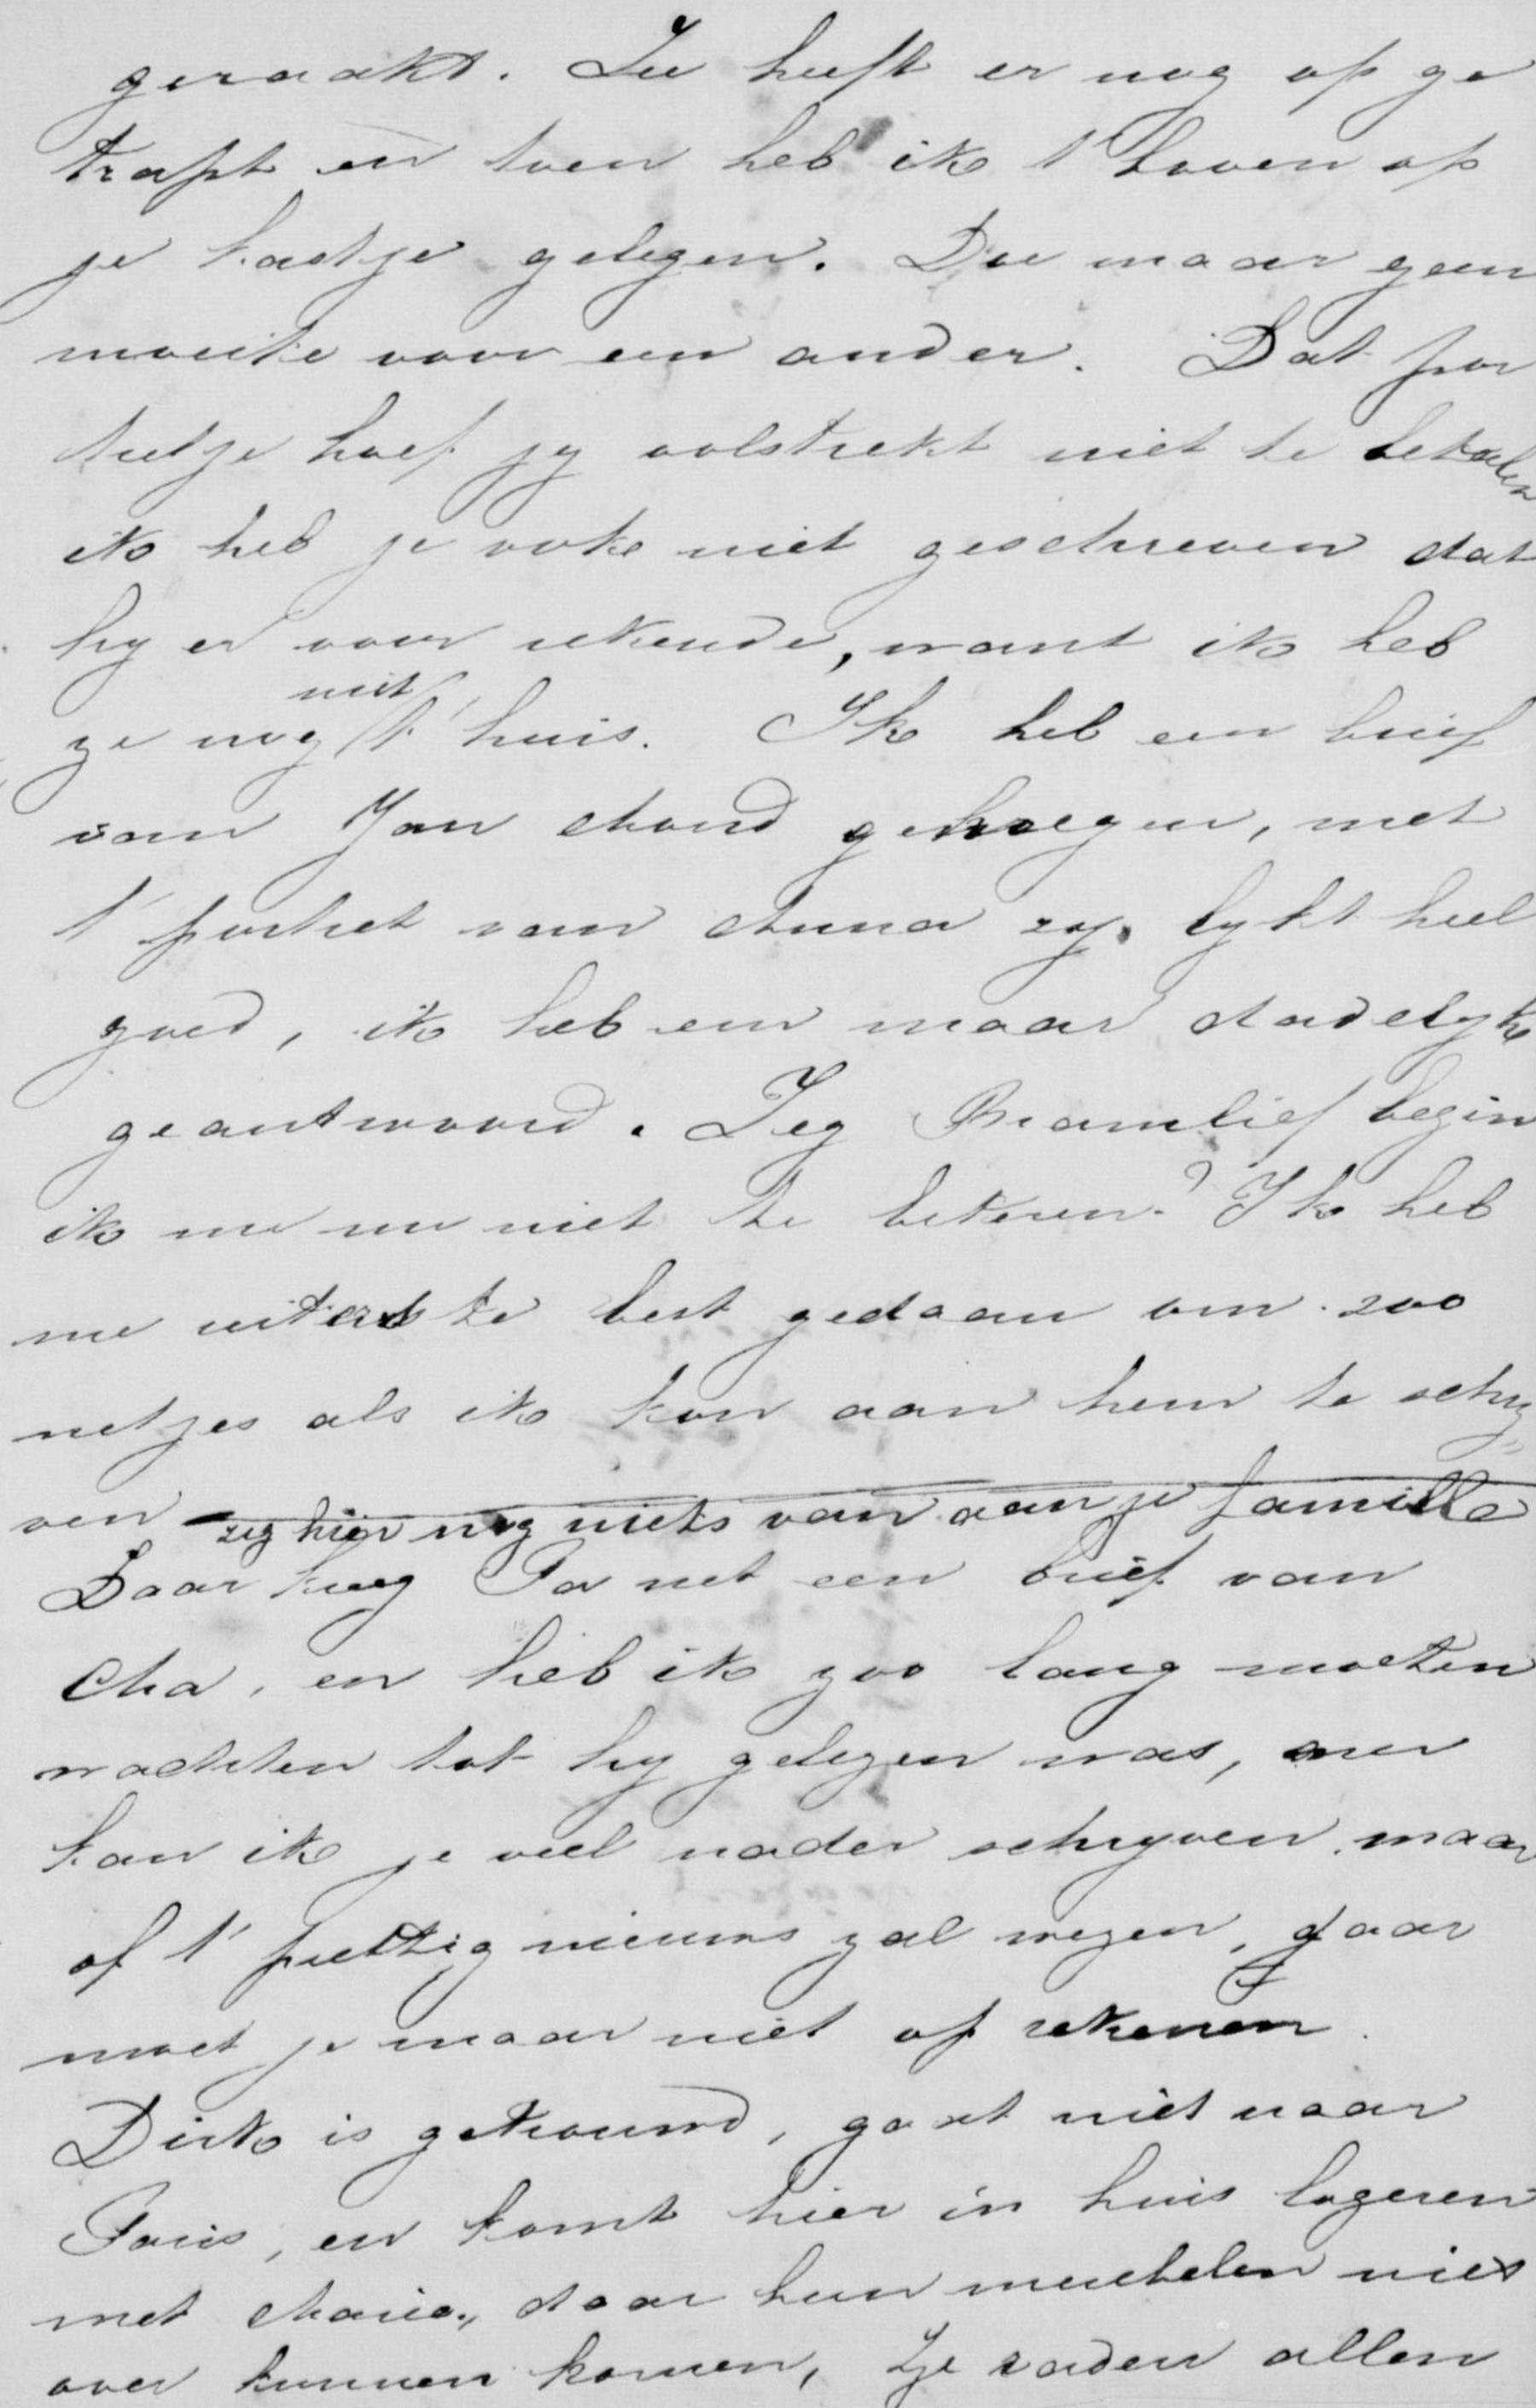 geraakt. Zee heeft er nog op ge
trapt en toen heb ik t' boven op
je kastje gelegen. Doe maar geen
moeite voor een ander. Dat por
tretje hoef jy volstrekt niet te betalen
ik heb je ook niet geschreven dat
hy er voor rekende, want ik heb
ze nog niet t' huis. Ik heb een brief
van Jan gekregen, met
t' portret van Anna zy lykt heel
goed, ik heb em maar dadelyk
geantwoord. Zeg Bramlief begin
ik me nu niet te beteren? Ik heb
me uiterste best gedaan om zoo
netjes als ik kon aan hem te schry=
ven zeg hier nog niets van aan je familie
Daar kreeg Pa net een brief van
Cha, en heb ik zoo lang moeten
wachten tot hy gelezen was, nu
kan ik je veel nader schryven, maar
of t' prettig nieuws zal wezen, daar
moet je maar niet op rekenen.
Dirk is getrouwd, gaat niet naar
Parys, en komt hier in huis logeren
met Marie, daar hun meubelen niet
over kunnen komen, Ze raden allen